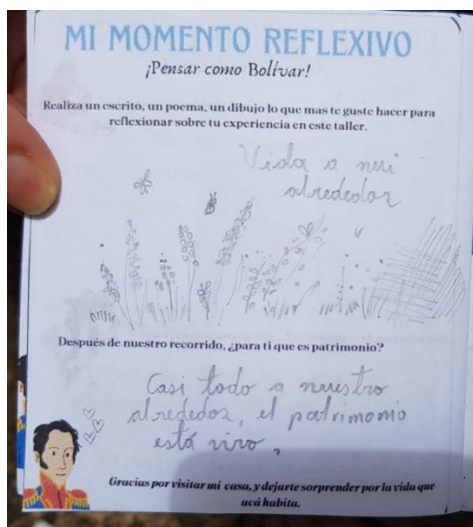 MI MOMENTO REFLEXIVO
¡Pensar como Bolívar!
Realiza un escrito, un poema, un dibujo lo que mas te guste hacer para
reflexionar sobre tu experiencia en este taller.
Vida a mi
alrededor
Después de nuestro recorrido, ¿para ti que es patrimonio?
Casi todo a nuestro
alrededor, el patrimonio
está vivo.
Gracias por visitar mi casa, y dejarte sorprender por la vida que
acá habita.